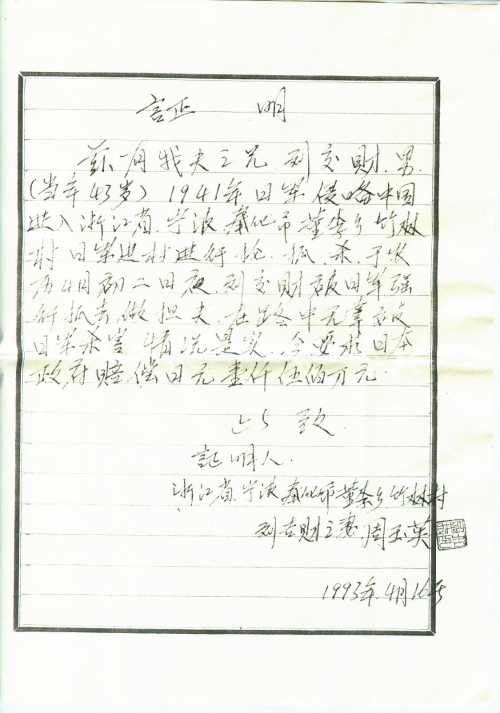 証 明
兹有我夫之兄.刘交财.男.
(当年43岁) 1941年日军侵略中国
进入浙江省.宁波奉化市董李乡竹林
村日军进村进行抢.抓.杀.于农
历4月初二日夜.刘交财被日军强
行抓去做担夫.在路中无辜被
日军杀害.情况是实.今要求日本
政府赔偿日元壹仟伍佰万元.
此致
証明人.
浙江省宁波奉化市董李乡竹林村
刘吉财之妻周玉英
1993年.4月16号